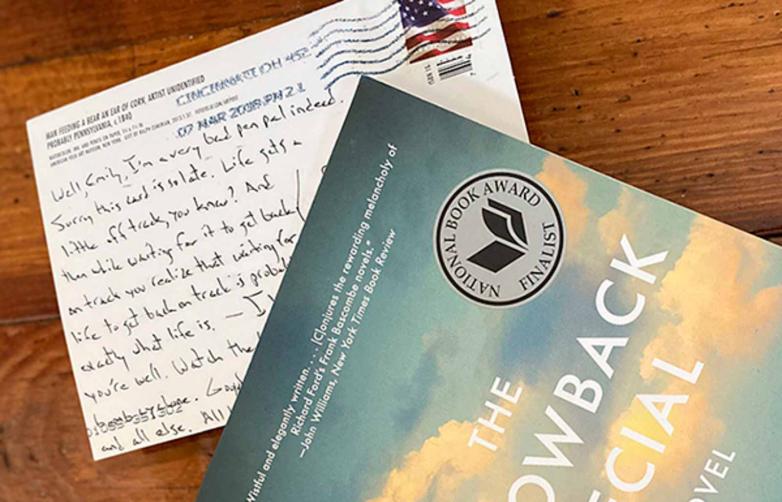 MAN FEEDING A BEAR AN EAR OF CORN, ARTIST UNIDENTIFIED
PROBABLY PENNSYLVANIA, c.1840
CINCINNATI OH 452
07 MAR 2018 PM 2 L
Well Emily, I'm a very bad pen pal indeed.
Sorry this card is so late. Life gets a
little off track, you know? And
then while waiting for it to get back
on track you realize that waiting for
life to get back on track is
exactly what life is. —
you're well. Watch the
and all else. All
NATIONAL BOOK AWARD
FINALIST
Wistful and elegantly written. . . . [C]onjures the rewarding melancholy of
Richard Ford's Frank Bascombe novels."
—John Williams, New York Times Book Review
THE
OWBACK
ECIAL
OVEL